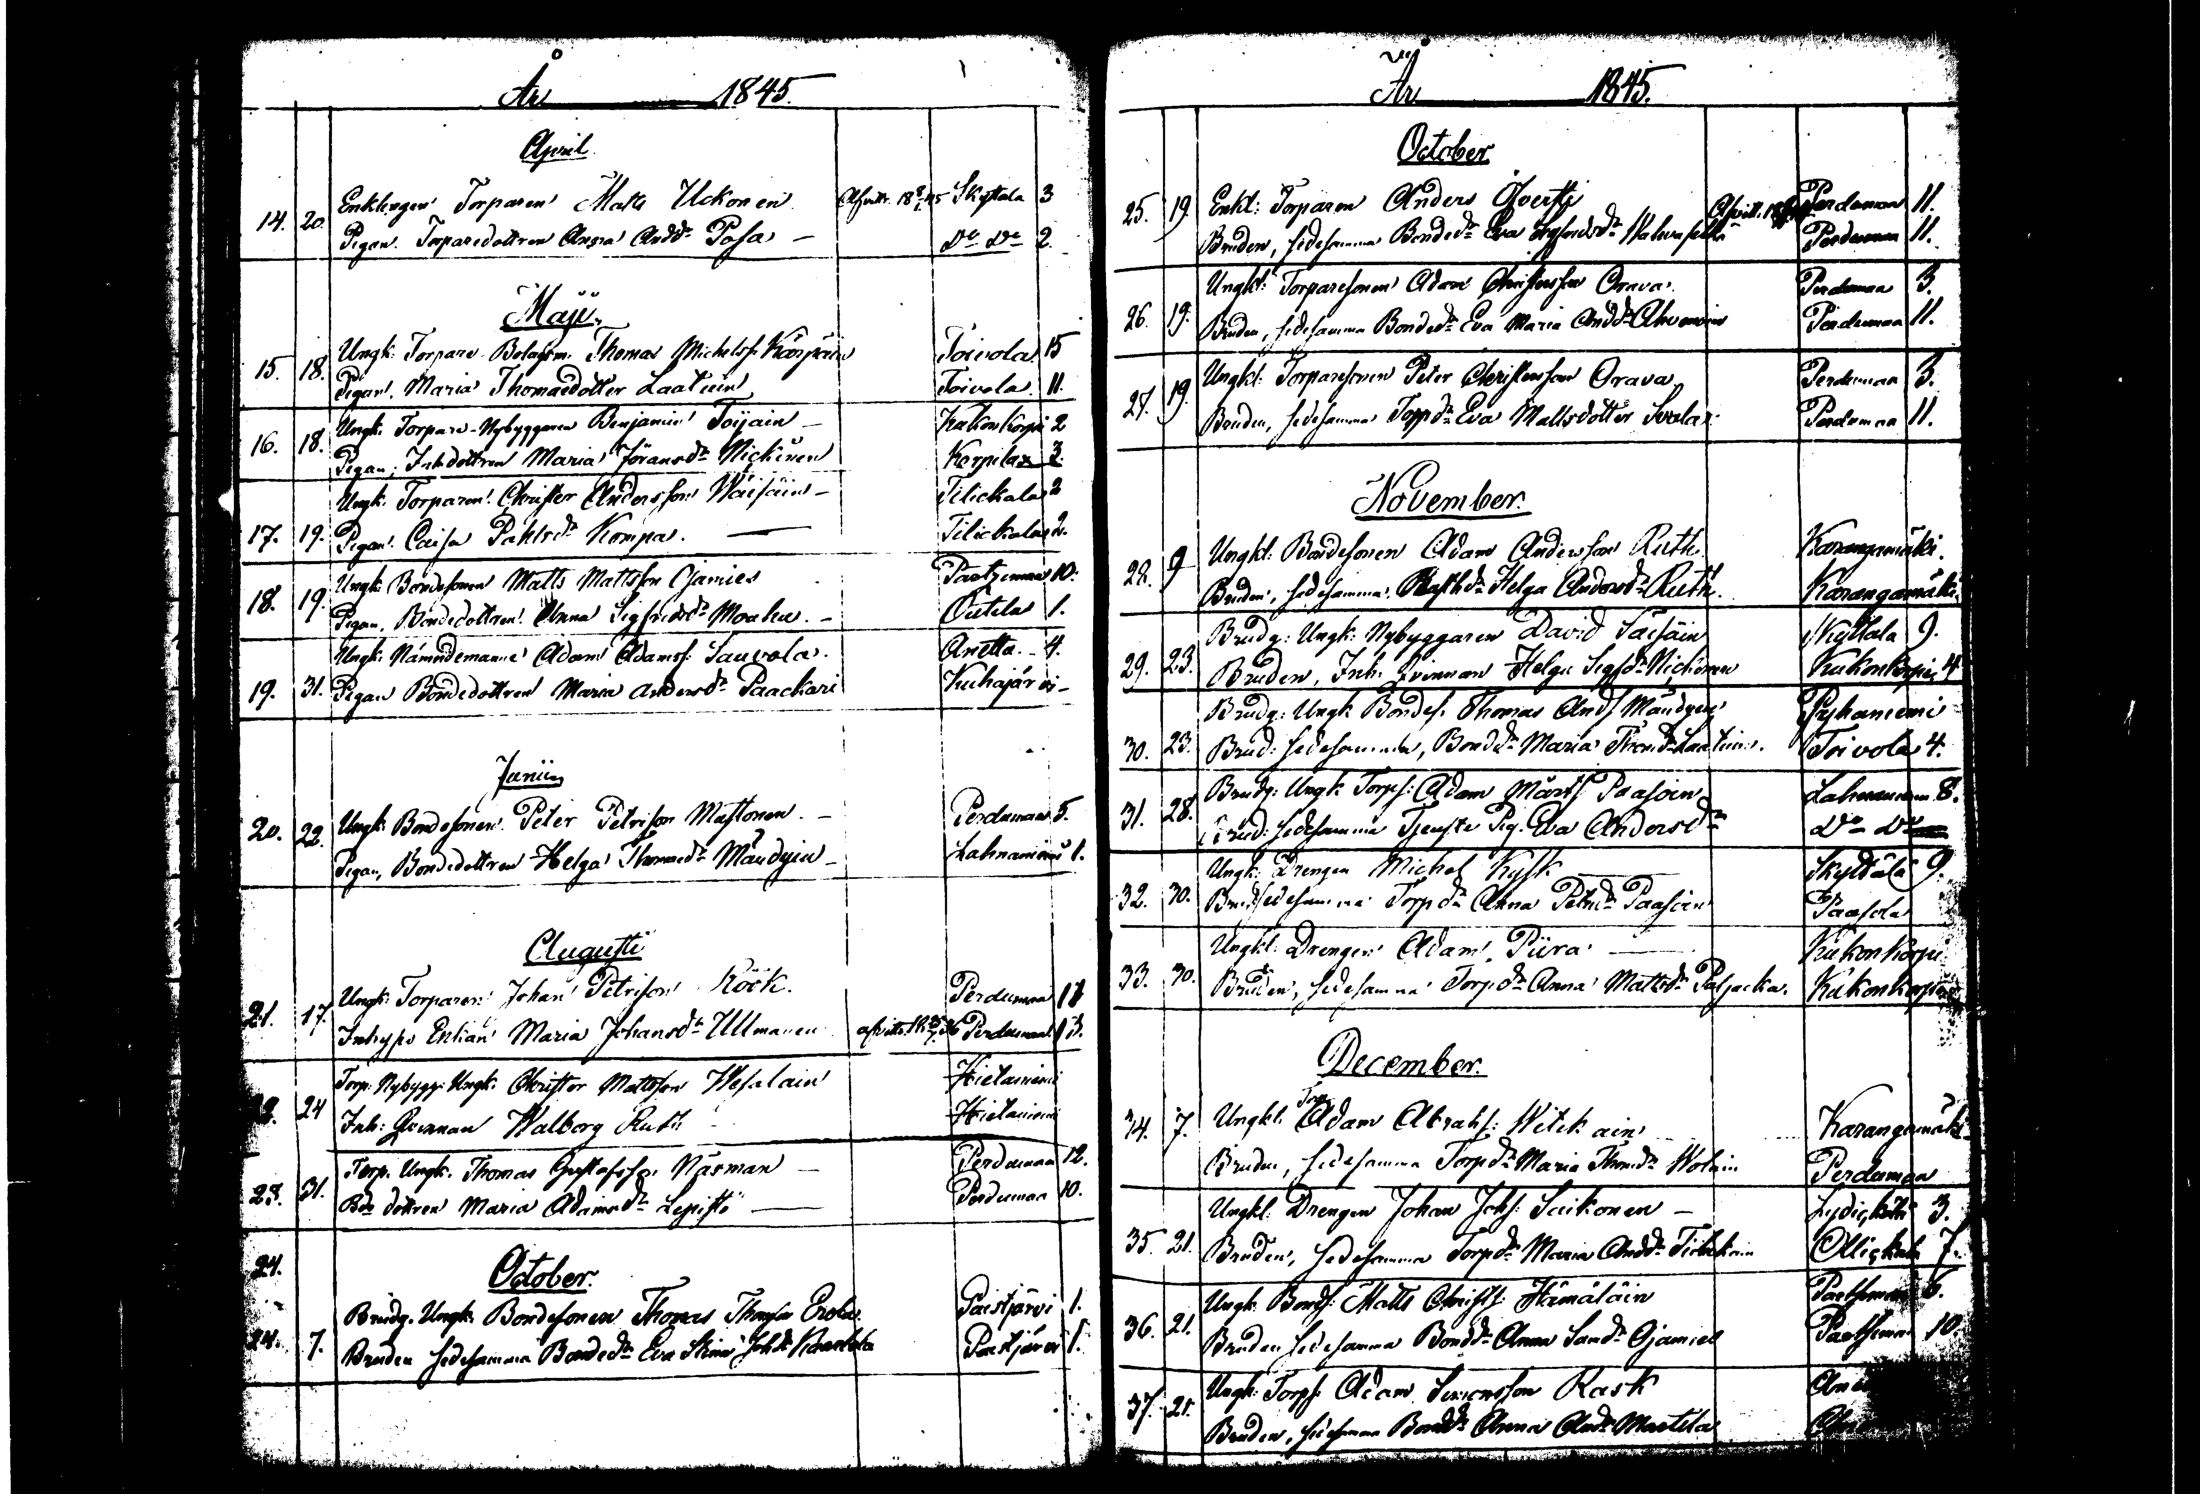 År 1845.
April
14. 20. Enklingen Torparen Matts Uckonen Skyttala 3
Pigan. Torparedottren Anna Andds Posa — Do Do 2.
Maji
15. 18. Ungk: Torpare-Bolagsm. Thomas Michelss: Kärpäin Toivola 15
Pigan. Maria Thomaedotter Laatuin Toivola 11.
16. 18. Ungk: Torpare-Nybyggaren Benjamin Toijain — Kukonkorpi 2
Pigan, Inhdottren Maria Jöransdr Nickinen Korpila 3.
17. 19. Ungk: Torparen Christer Andersson Wäisäin — Tilickala 2
Pigan. Caisa Pahlsdr Kompa. — Tilickala 2.
18. 19. Ungk: Bondesonen Matts Mattsson Ojamies Paatjemaa 10.
Pigan. Bondedottren Anna Sigfridsdr Moahu. — Outila 1.
19. 31. Ungk: Nämndemannen Adam Adamss: Sauvola. Anetta. 4.
Pigan Bondedottren Maria Andersdr Paackari Kuhajärvi —
Junii
20. 22. Ungk: Bondesonen Peter Petrison Mastonen. — Perdumaa 5.
Pigan, Bondedottren Helga Thomaedr Mäudyin — Lahnaniemi 1.
Augusti
21. 17. Ungk: Torparen Johan Petrison Röck. Perdumaa
Inhyses Enkan Maria Johansdr Ullmanen Perdumaa 13.
24 Torp: Nybygg: Ungk: Christer Mattsson Wesalain Hietaniemi
Inh: Qvinnan Walborg Ruth Hietaniemi
23. 31. Torp. Ungk. Thomas Gustafsson Näsman — Perdumaa 12.
Bdedottren Maria Adamsdr Lepistö — Perdumaa 10.
24.
October.
24. 7. Brudg. Ungk: Bondesonen Thomas Thomsson Erola. Paistjärvi 1.
Bruden hedesamma Bondedr Eva Stina Johdr Kaartela Paistjärvi 1.
År 1845.
October
25. 19. Enkl: Torparen Anders Qverti Perdumaa 11.
Bruden, hedesamma Bondedr Eva Sigfridsdr Perdumaa 11.
26. 19. Ungkl: Torparesonen Adam Christersson Orava. Perdumaa 3.
Bruden, hedesamma Bondedr Eva Maria Anddr Ahvenain Perdumaa 11.
27. 19. Ungkl: Torparesonen Peter Christersson Orava Perdumaa 3.
Bruden, hedesamma Torpdr Eva Mattsdotter Perdumaa 11.
November.
28. 9 Ungkl: Bondesonen Adam Andersson Ruth Karangamäki.
Bruden, hedesamma Helga Andersdr Ruth. Karangamäki.
29. 23. Brudg: Ungk: Nybyggaren David Säisäin Skyttala 9.
Bruden, Inh. Qvinnan Helga Sigfdr Nickinen Kukonkorpi 4
30. 23. Brudg: Ungk Bondes. Thomas Ands Mäudyin Pyhaniemi
Brud: hedesamma, Bonddr Maria Thomdr Laatuin. Toivola 4.
31. 28. Brudg: Ungk Torps: Adam Märts Paasoin Lahnaniemi 8.
Brud: hedesamma Tjenste Pig. Eva Andersdr Do Do
32. 30. Ungk: Drengen Michel Kysk Skyttälä 9.
Brud hedesamma Torpdr Anna Petridr Paasoin Paasola
33. 30. Ungkl: Drengen Adam Piira — Kukonkorpi
Bruden, hedesamma Torpdr Anna Mattsdr Paljacka. Kukonkorpi
December.
34. 7. Ungkl: Adam Abrahs: Witikain Karangamäki
Bruden, hedesamma Torpdr Maria Thomdr Wolain Perdumaa
35. 21. Ungkl: Drengen Johan Johs: Saikonen — 3.
Bruden, hedesamma Torpdr Maria Anddr Ollickala 7.
36. 21. Ungk: Bonds: Matts Christs: Hämäläin 6.
Bruden hedesamma Bonddr Anna Ojamies 10.
37. 21. Ungk: Torps: Adam Simonsson Rask
Bruden, hedesamma Bonddr Anna Anddr Martila